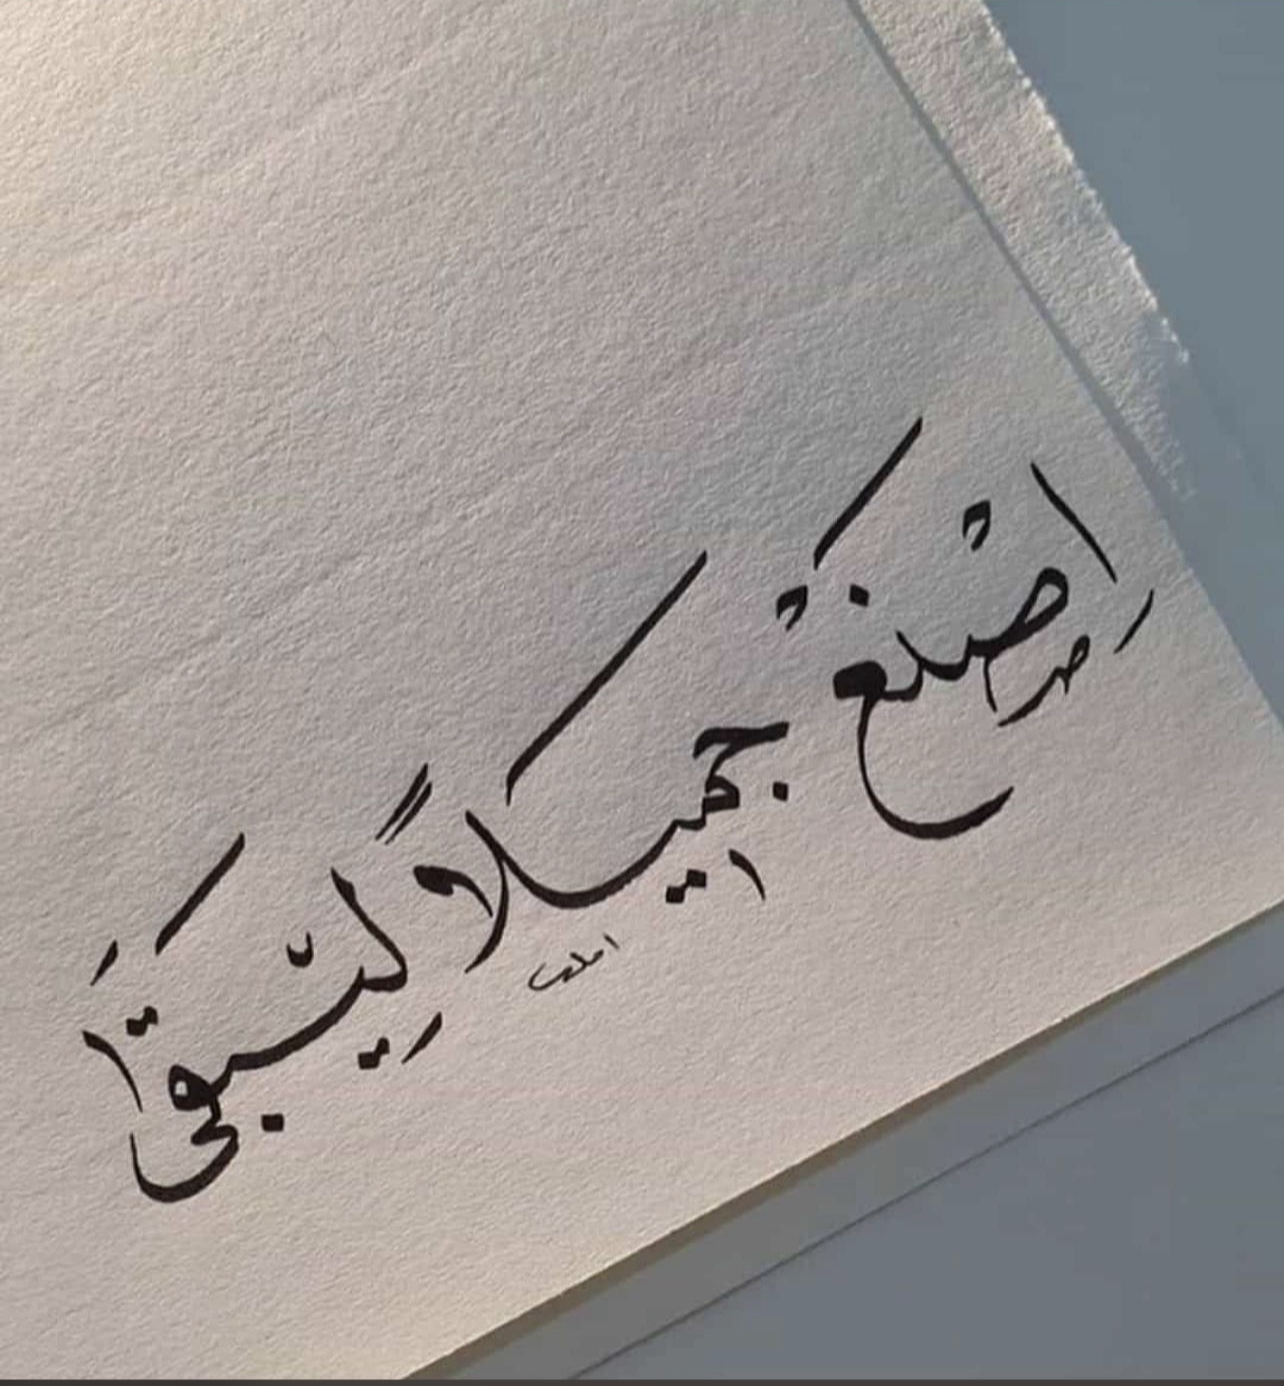 اِصْنَعْ جميلاً لِيَبقىَ